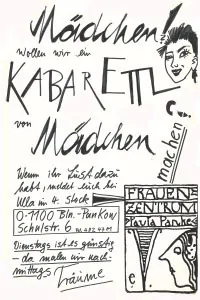 Mädchen!
Wollen wir ein
KABARETT
von
Mädchen
machen?
Wenn ihr Lust dazu
habt, meldet euch bei
Ulla im 4. Stock
O-1100 Bln.-Pankow
Schulstr. 6
FRAUENZENTRUM
Paula Panke
Dienstags ist es günstig
– da malen wir nach-
mittags Träume